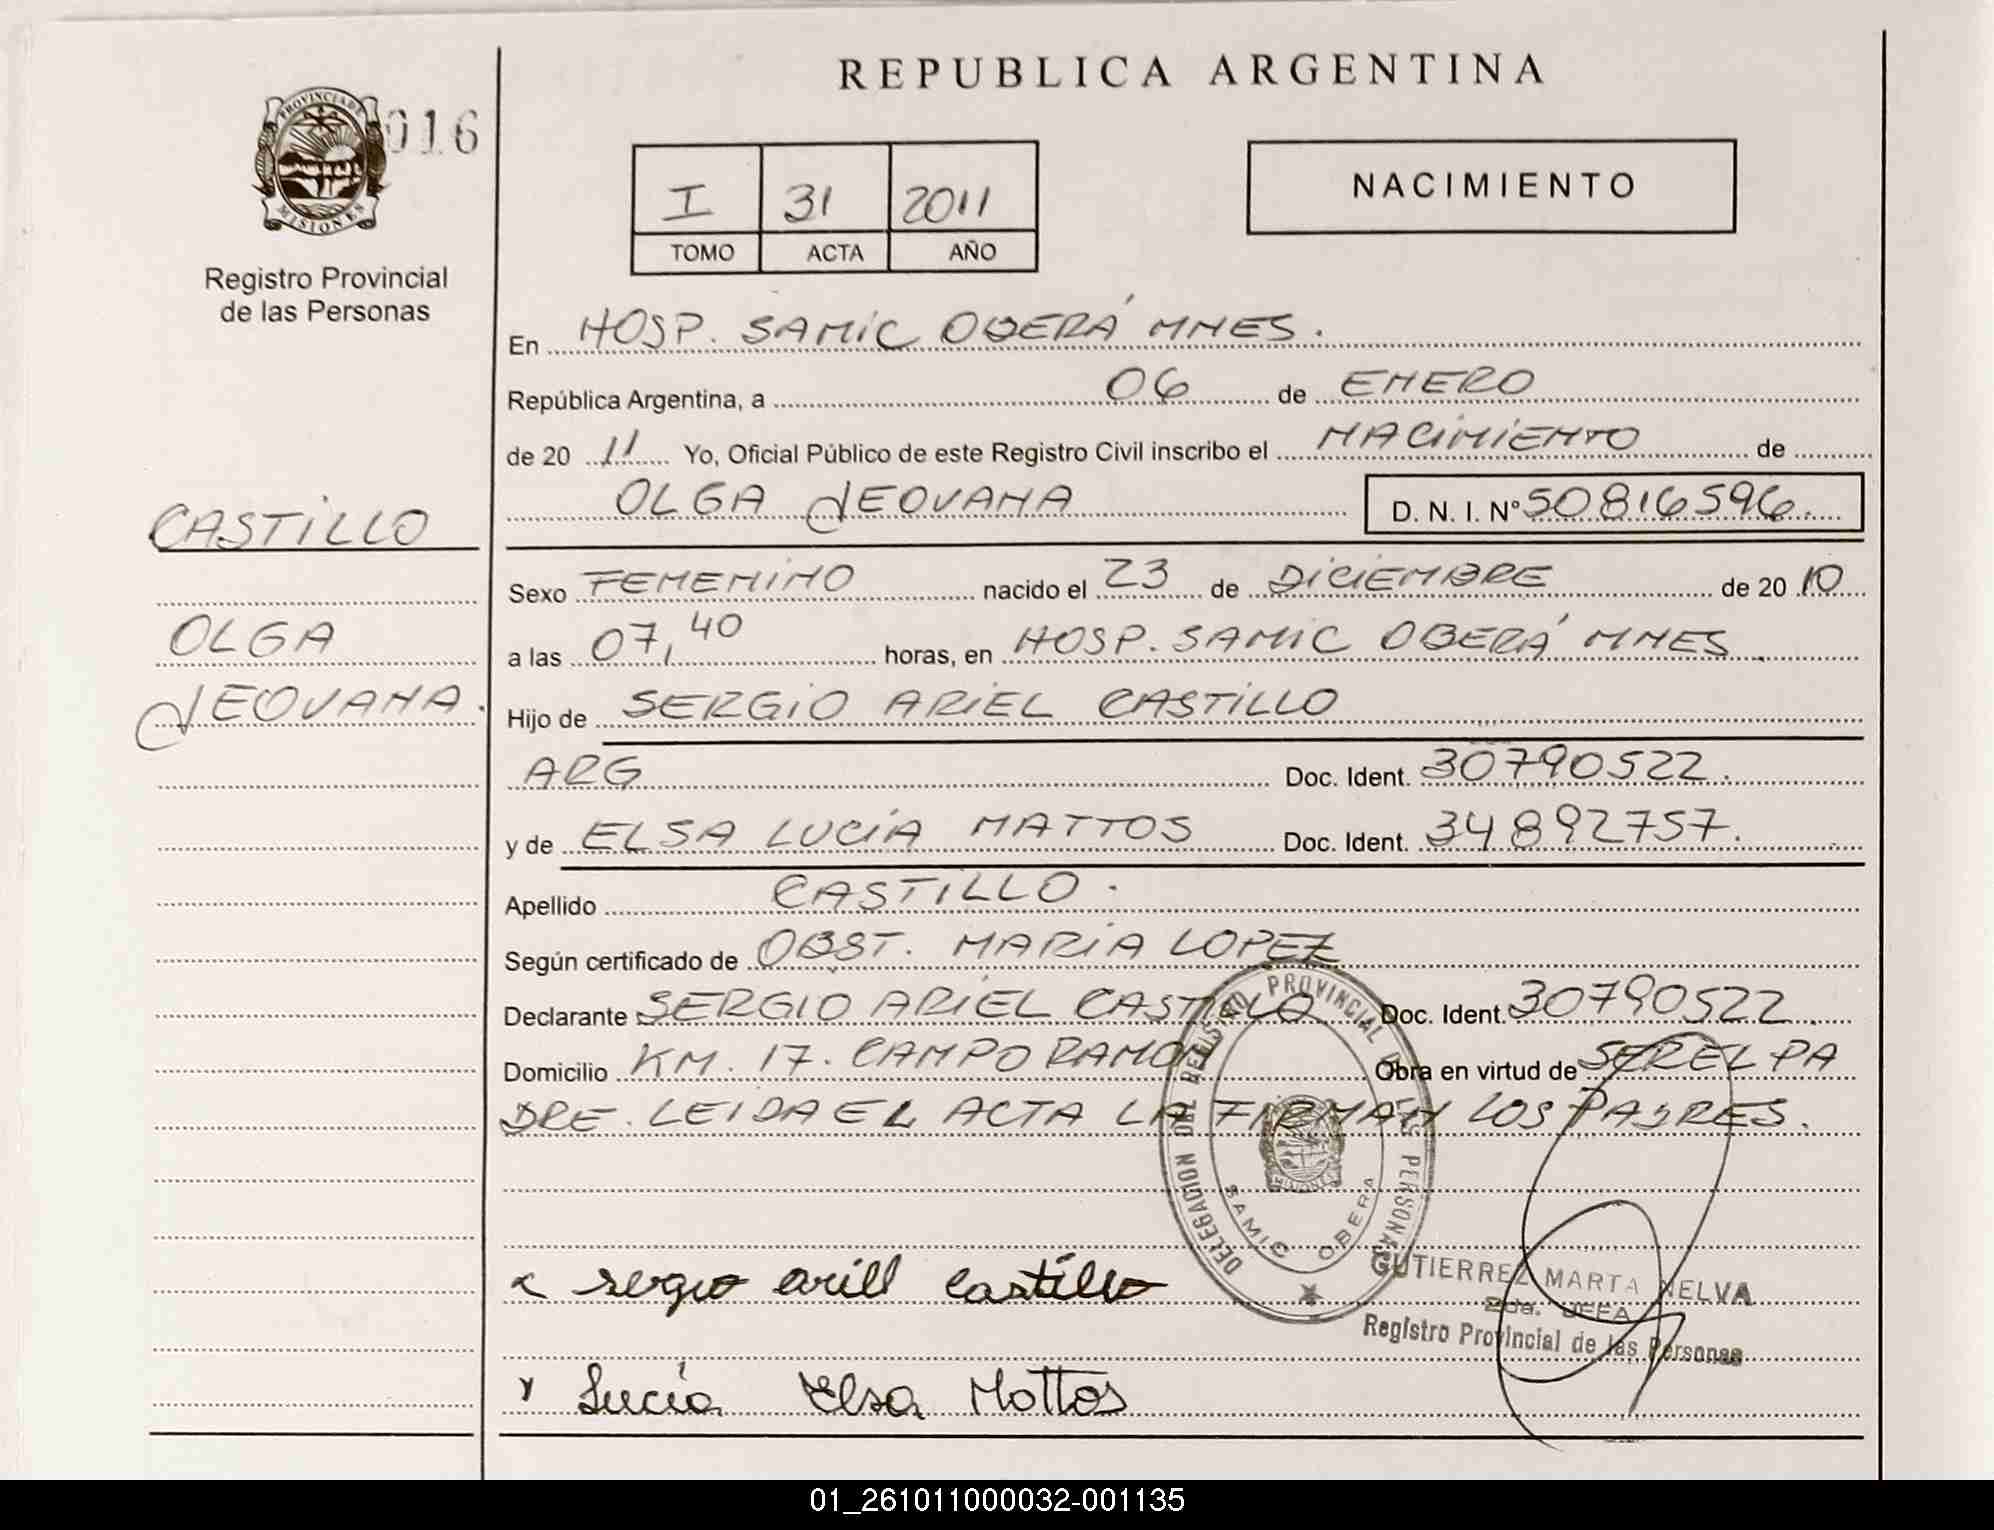 REPUBLICA ARGENTINA
PROVINCIA DE
MISIONES
016
Registro Provincial
de las Personas
I 31 2011
TOMO ACTA AÑO
NACIMIENTO
En HOSP. SAMIC OBERÁ MNES.
República Argentina, a 06 de ENERO
de 20 11 Yo, Oficial Público de este Registro Civil inscribo el NACIMIENTO de
OLGA JEOVANA D. N. I. Nº 50816596.
CASTILLO
OLGA
JEOVANA.
Sexo FEMENINO nacido el 23 de DICIEMBRE de 20 10
a las 07,40 horas, en HOSP. SAMIC OBERÁ MNES.
Hijo de SERGIO ARIEL CASTILLO
ARG Doc. Ident. 30790522.
y de ELSA LUCÍA MATTOS Doc. Ident. 34892757.
Apellido CASTILLO.
Según certificado de OBST. MARIA LOPEZ
Declarante SERGIO ARIEL CASTILLO Doc. Ident. 30790522.
Domicilio KM. 17. CAMPO RAMON Obra en virtud de SER EL PA
DRE. LEIDA EL ACTA LA FIRMAN LOS PADRES.
DELEGACION DEL REGISTRO PROVINCIAL DE LAS PERSONAS
MISIONES
SAMIC OBERA
sergio arill castillo
GUTIERREZ MARTA NELVA
Registro Provincial de las Personas
Lucía Elsa Mottos
01_261011000032-001135